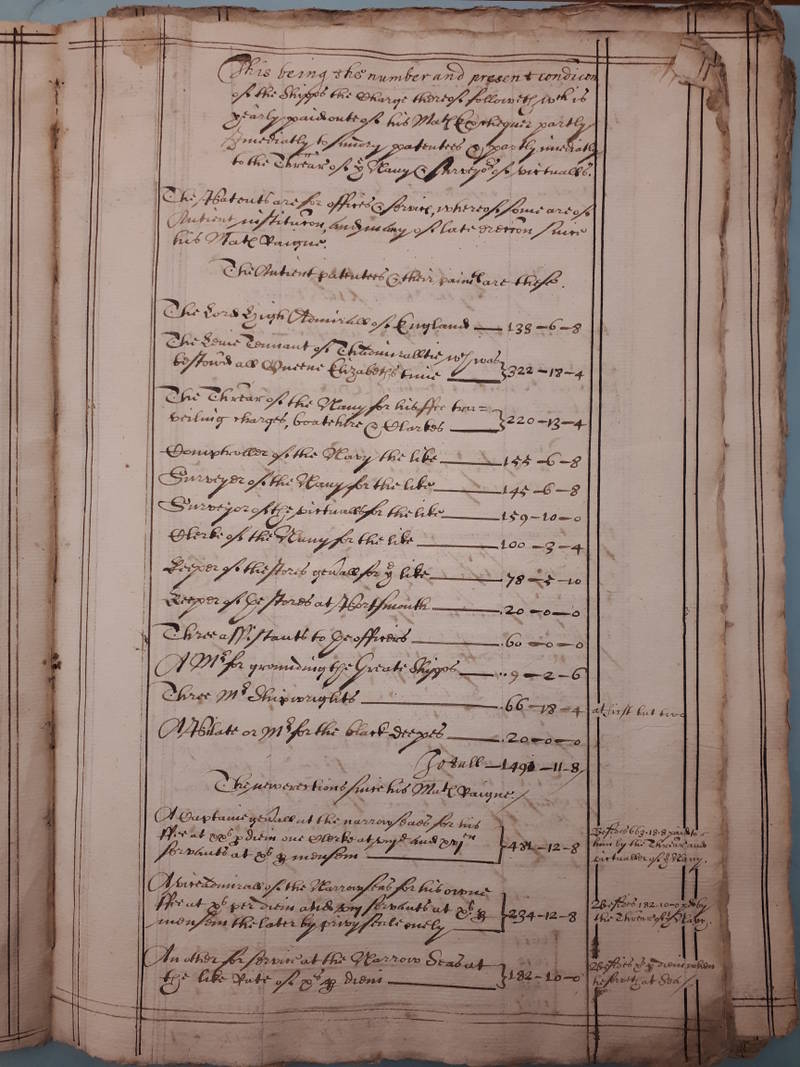 This being the number and present condicon
of the Shipps the Charge thereof followeth wch is
yearly paid oute of his Matꝭ Exchequer partly
Imediatly to sundry patentees & partly imediatly
to the Threãr of ye Navy & Surveyor of victualls.
The Patents are for offices & service, whereof some are of
Antient institucon, and many of late ereccon since
his Matꝭ Raigne.
The Antient patentees & their paimtꝭ are these.
The Lord High Admirall of England — 133-6-8
The Leiue Tennant of Thadmiraltie wch was
bestowed all Queene Elizabeths time — 322-18-4
The Threãr of the Navy for his ffee trau=
veiling charges, boatehire & Clarkes — 220-13-4
Comptroller of the Navy the like — 155-6-8
Surveyer of the Navy for the like — 145-6-8
Surveyor of the victualls for the like — 159-10-0
Clerke of the Navy for the like — 100-3-4
Keeper of the stores genãll for ye like — 78-5-10
Keeper of ye stores at Portsmouth — 20-0-0
Three assistants to ye officers — 60-0-0
A Mr for grounding the Greate Shipps — 9-2-6
Three Mr Shipwrights — 66-18-4 at first but two
A Pilate or Mr for the black deepes — 20-0-0
Totall — 1491-11-8
The new erections since his Matꝭ Raigne
A Captaine genãll at the narrow seas for his
ffee at xxs p diem one Clerke at viijd and xvjen
servants at xs p mensem — 481-12-8
Besides 663-18-8 paid to
him by the Threãr and
victualler of ye Navy.
A viceadmirall of the Narrow seas for his owne
ffee at xs per diem and servants at xs p
mensem the later by privy seale onely — 234-12-8
Besides 182-10-0 by
the Threãr of ye Navy.
An other for service at the Narrow Seas at
the like Rate of xs p diem — 182-10-0
Besides p diem when
he serveth at Sea